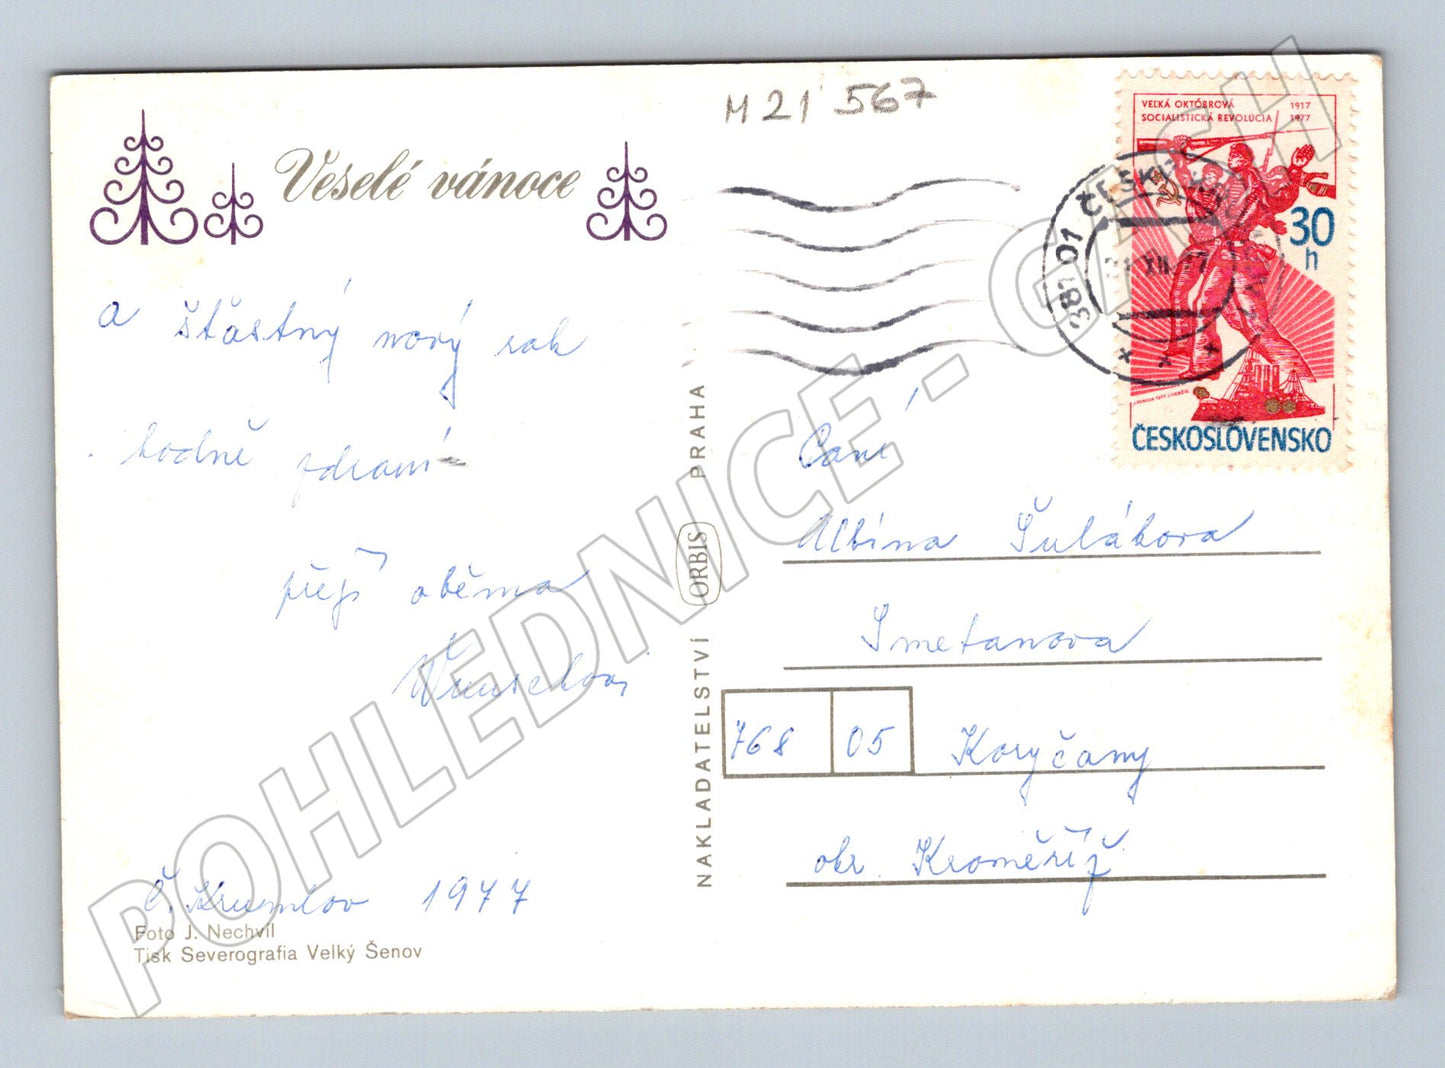 M21 567
Veselé vánoce
a šťastný nový rok
hodně zdraví
přejí oběma
Č. Krumlov 1977
Foto J. Nechvíl
Tisk Severografia Velký Šenov
NAKLADATELSTVÍ ORBIS PRAHA
VEĽKÁ OKTÓBROVÁ 1917
SOCIALISTICKÁ REVOLÚCIA 1977
30
h
ČESKOSLOVENSKO
381 01 ČESKÝ
Paní
Albína Šulákova
Smetanova
768 05 Koryčany
okr. Kroměříž
POHLEDNICE - GASH